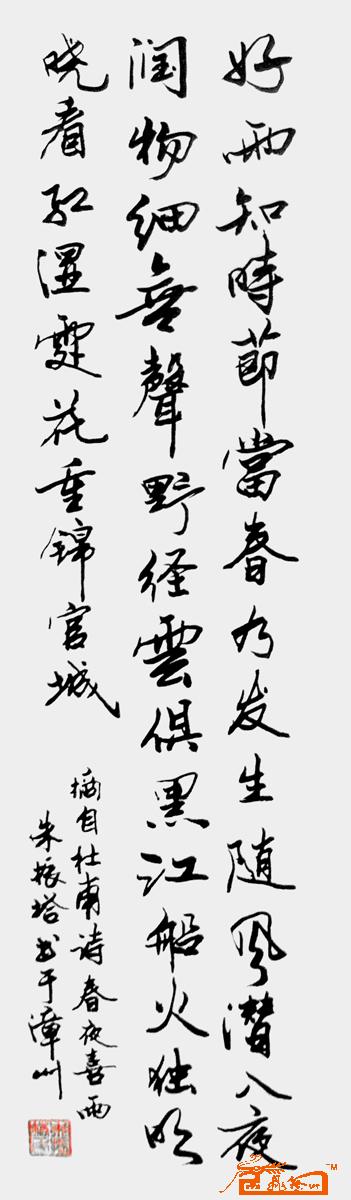 好雨知時節當春乃发生随风潜入夜
润物细無聲野径雲俱黑江船火独明
晓看红湿處花重锦官城
摘自杜甫诗春夜喜雨
朱振塔书于漳州